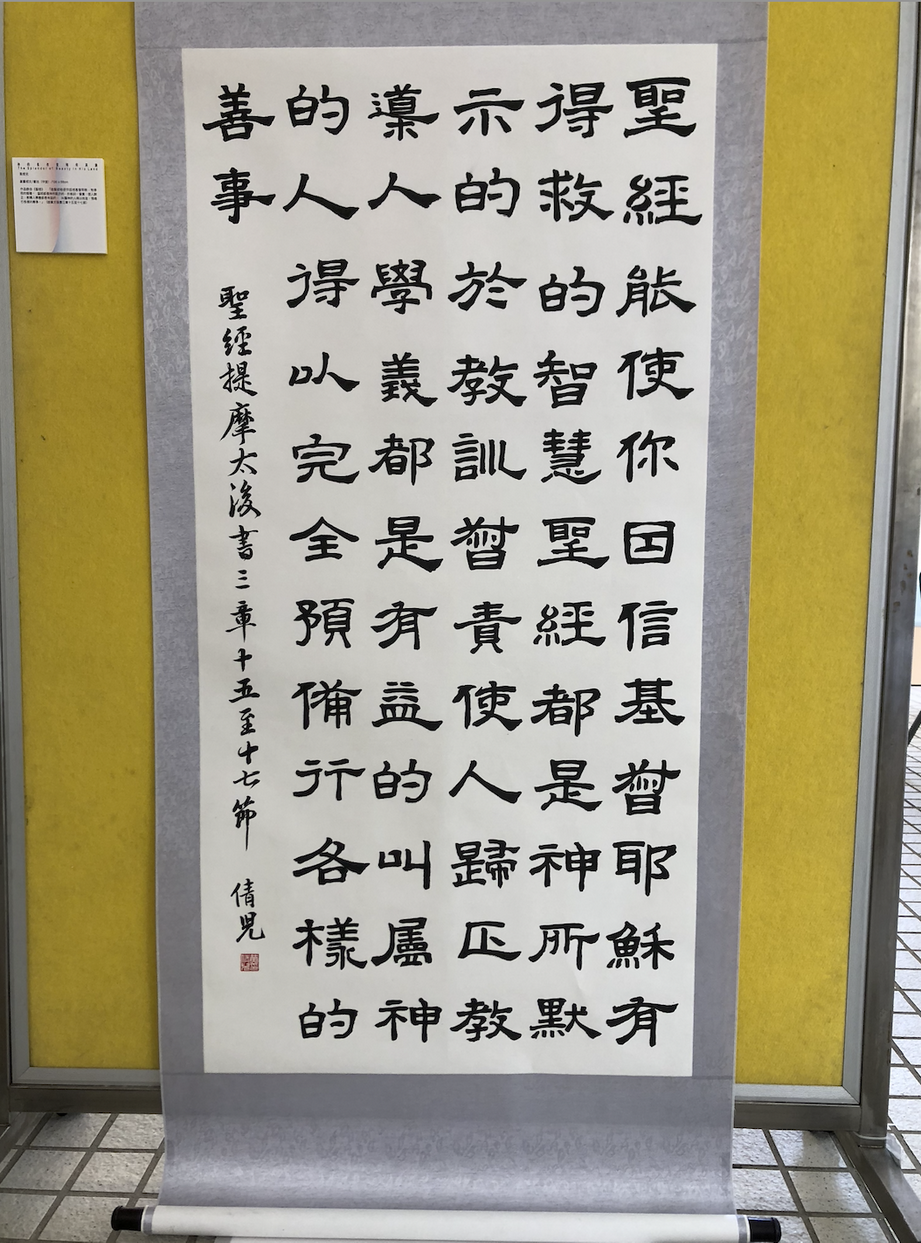 聖經能使你因信基督耶穌有
得救的智慧聖經都是神所默
示的於教訓督責使人歸正教
導人學義都是有益的叫屬神
的人得以完全預備行各樣的
善事 聖經提摩太後書三章十五至十七節 倩兒